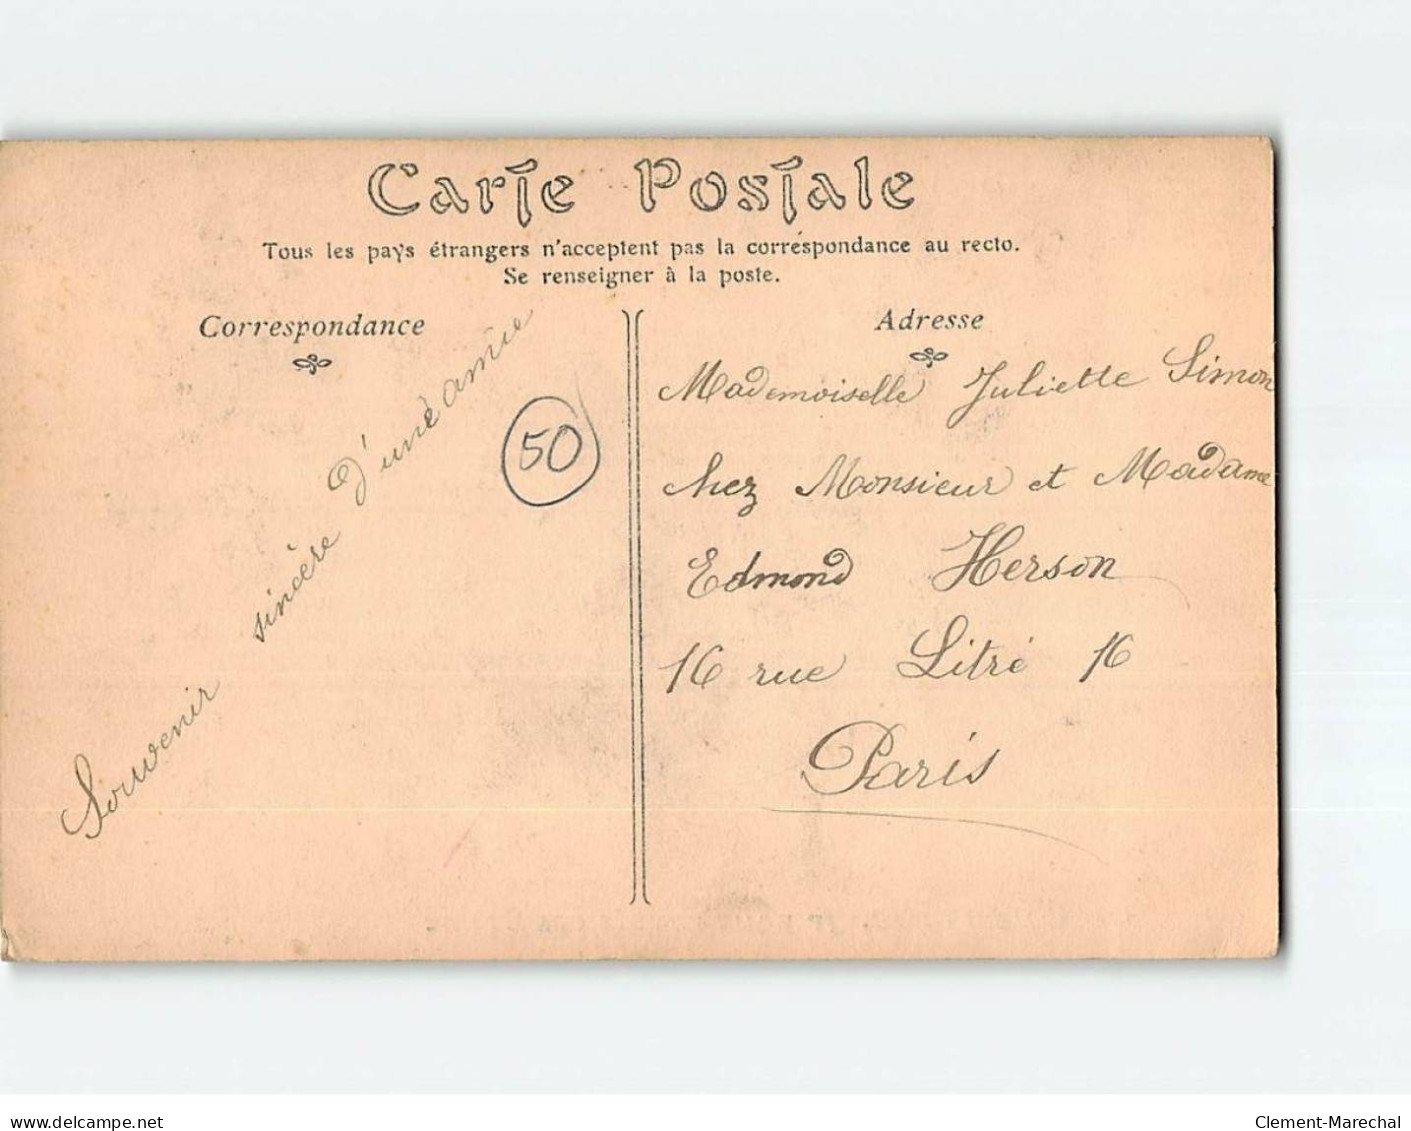 Carte Postale
Tous les pays étrangers n'acceptent pas la correspondance au recto.
Se renseigner à la poste.
Correspondance
Souvenir sincère d'une amie
50
Adresse
Mademoiselle Juliette Simon
chez Monsieur et Madame
Edmond Herson
16 rue Litré 16
Paris
www.delcampe.net
Clement-Marechal